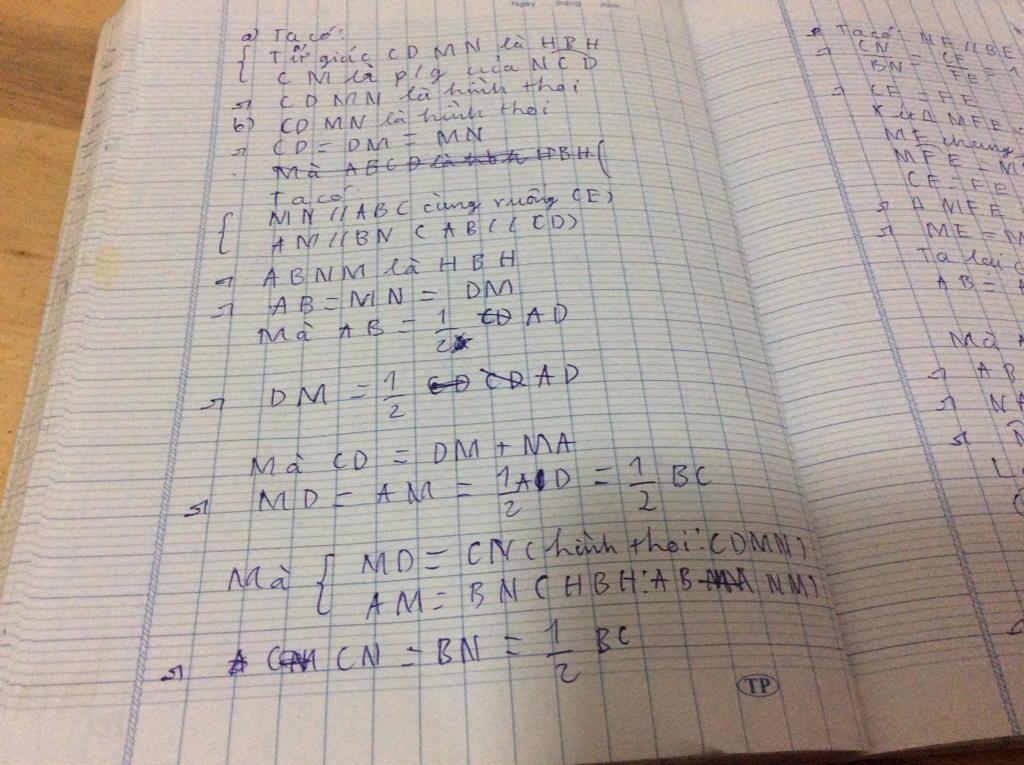 Ngày tháng năm
a) Ta có:
Tứ giác CDMN là HBH
CM là p/g của NCD
⇒ CDMN là hình thoi
b) CDMN là hình thoi
⇒ CD = DM = MN
Mà ABCD là hbh HBH (
Ta có
MN // AB ( cùng vuông CE)
AM // BN ( AB // CD)
⇒ ABNM là HBH
⇒ AB = MN = DM
Mà AB = 1/2 CD AD
⇒ DM = 1/2 CD CD AD
Mà CD = DM + MA
⇒ MD = AM = 1/2 AD = 1/2 BC
Mà { MD = CN ( hình thoi: CDMN)
AM = BN ( HBH: AB NM)
⇒ CN = BN = 1/2 BC
TP
Ta có: NE // BE
⇒ CN/BN = CF/FE = 1
⇒ CF = FE
MF chung
MFE = M
CF = FE
⇒ ME = M
Ta lại c
AB = A
Mà A
⇒ AB
⇒ NA